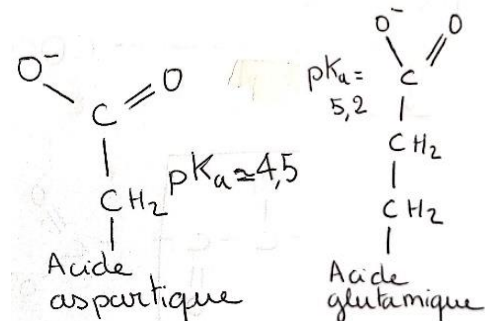 O⁻
O
C
CH₂
pKa≈4,5
Acide
aspartique
O⁻
O
pKa=
5,2
C
CH₂
CH₂
Acide
glutamique